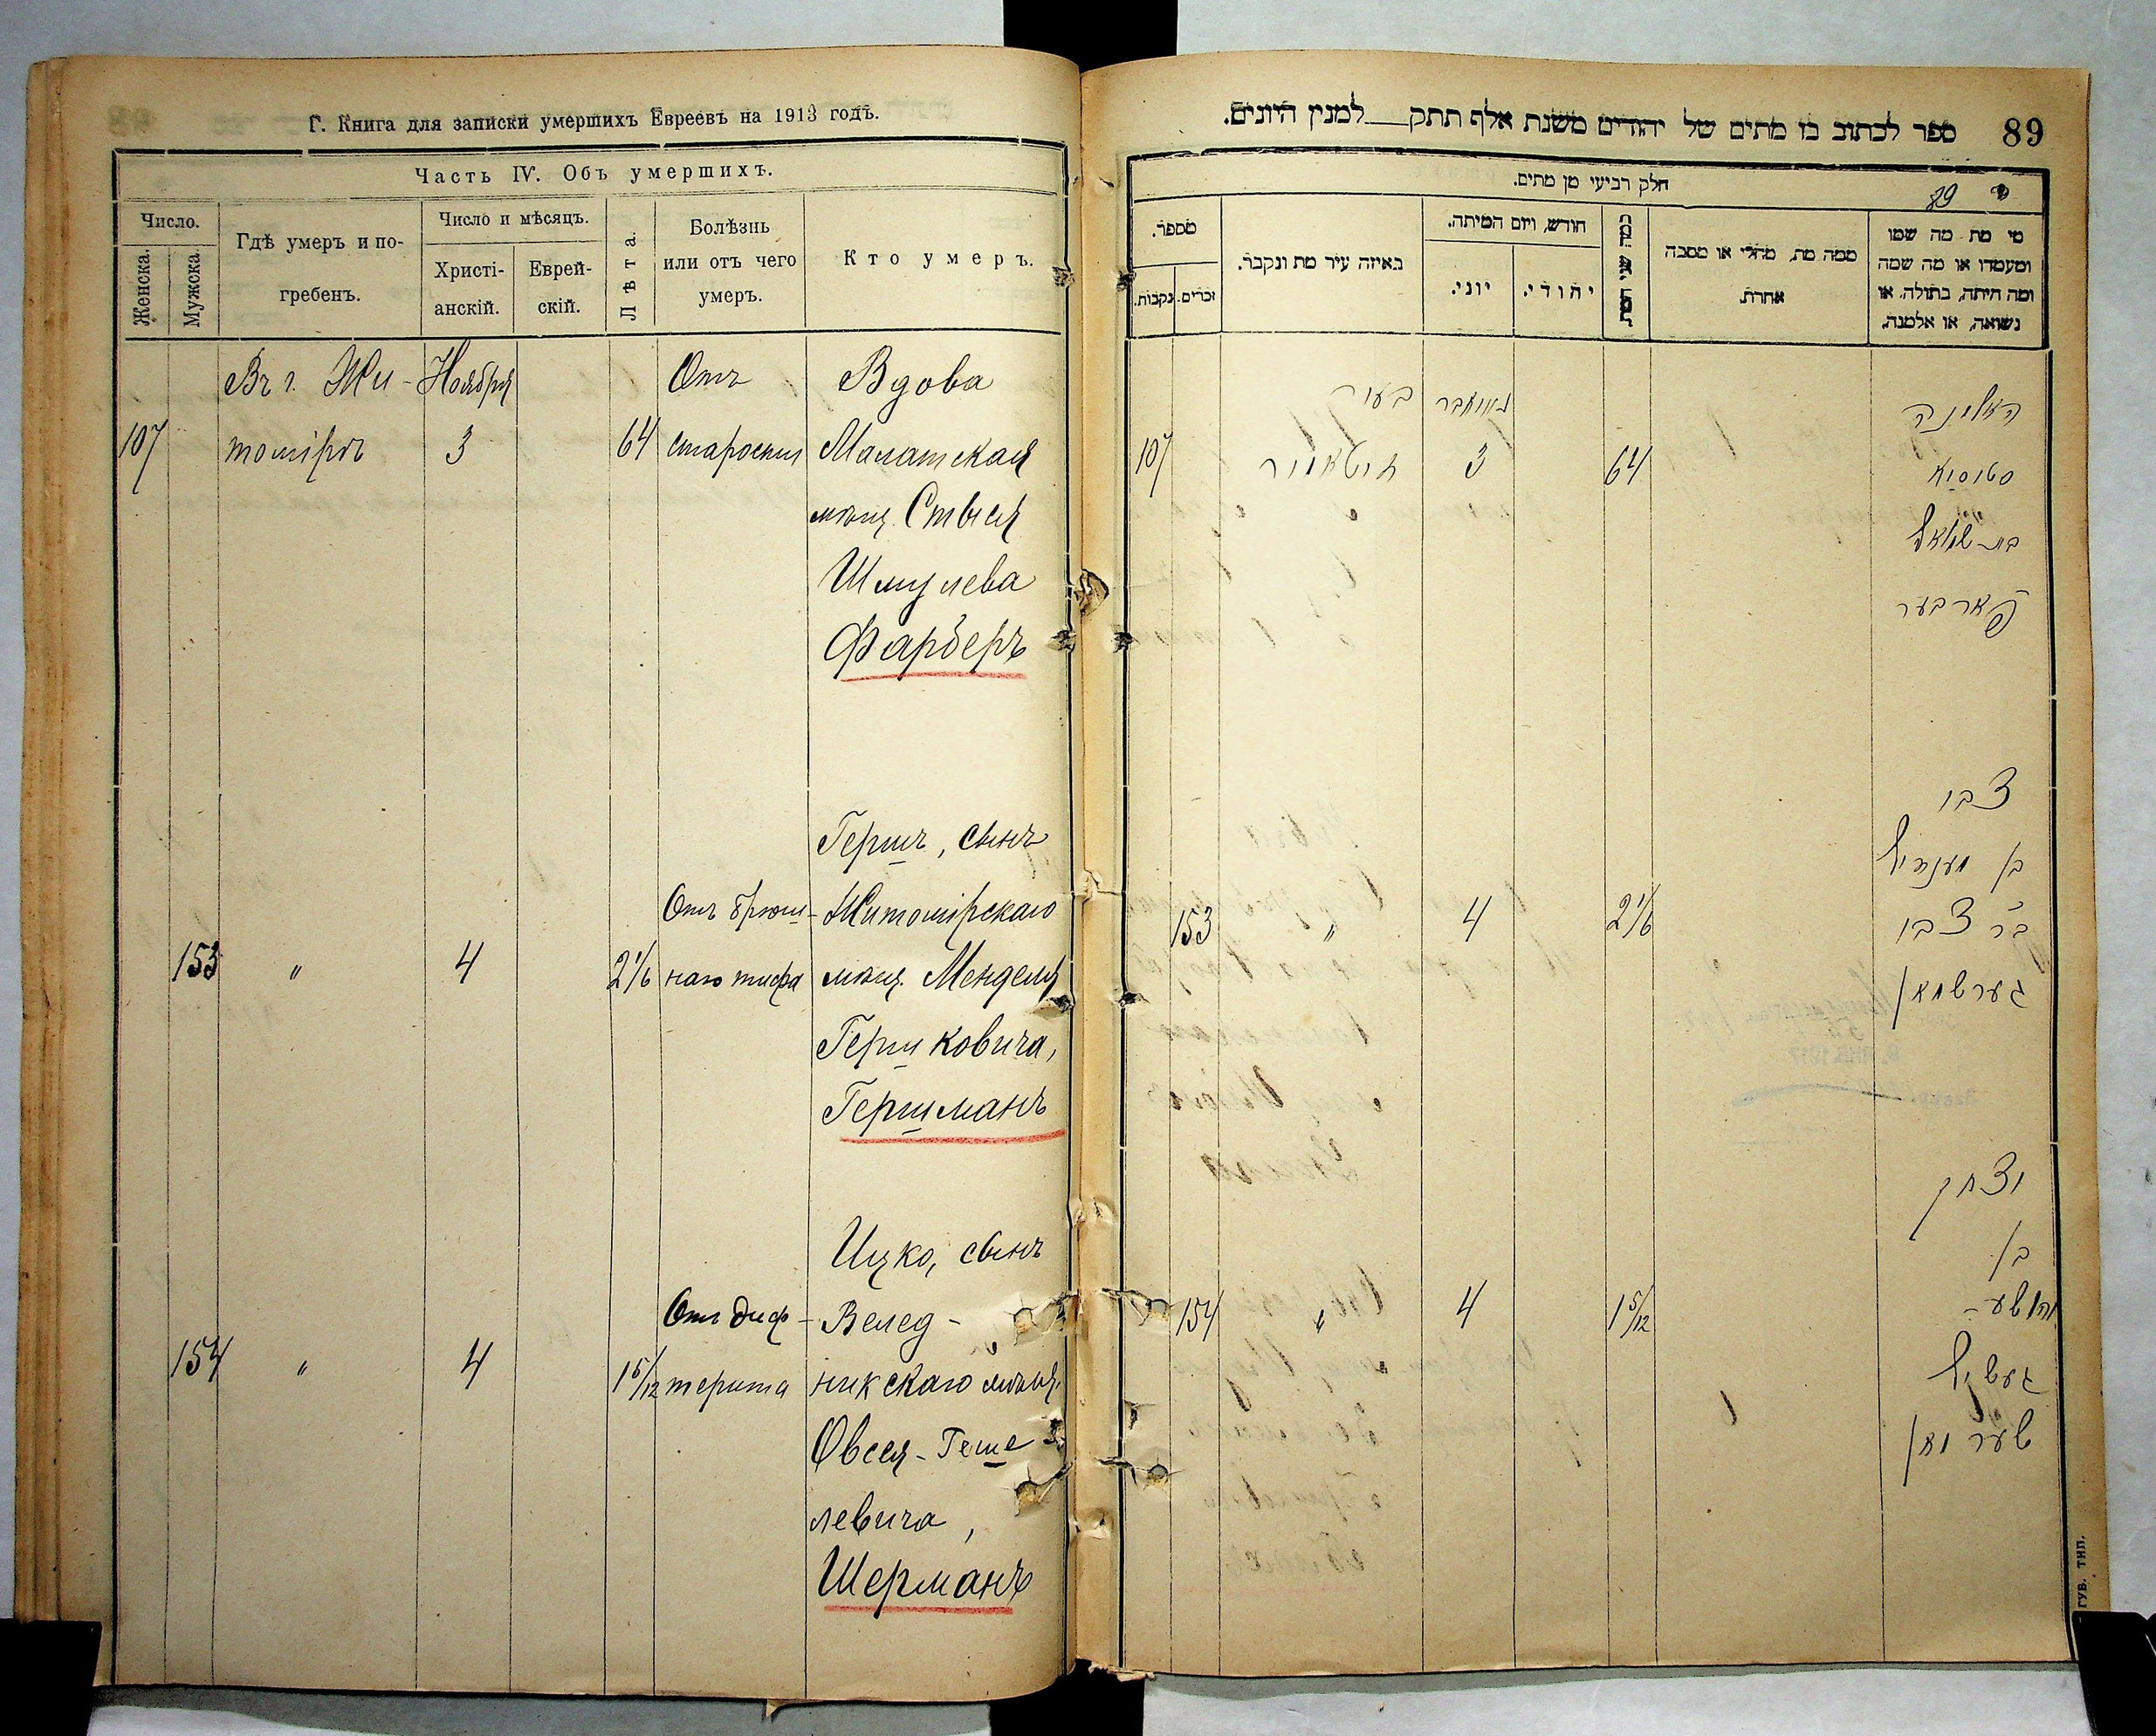 Г. Книга для записки умершихъ Евреевъ на 1913 годъ.
Часть IV. Объ умершихъ.
Число.
Женска.
Мужска.
Гдѣ умеръ и по-
гребенъ.
Число и мѣсяцъ.
Христі-
анскій.
Еврей-
скій.
Лѣта.
Болѣзнь
или отъ чего
умеръ.
Кто умеръ.
Въ г. Жи- Ноября Отъ Вдова
107 томірѣ 3 64 старости
мѣщ.
Шмулева
Фарберъ
Гершъ, сынъ
Отъ брюш- Житомірскаго
153 " 4 2 1/6 наго тифа мѣщ. Менделя
Гершковича,
Гершманъ
Ицко, сынъ
Отъ диф- Велед-
154 " 4 1 5/12 терита никскаго мѣщ.
Овсея-Геше
левича,
Шерманъ
89 ספר לכתוב בו מתים של יהודים משנת אלף תתק למנין היונים.
חלק רביעי מן מתים.
89
מספר.
נקבות.
זכרים.
באיזה עיר מת ונקבר.
חודש, ויום המיתה.
יוני.
יהודי.
כמה שני המת
ממה מת, מחלי או מסבה
אחרת.
מי מת מה שמו
ומעמדו או מה שמה
ומה היתה, בתולה, או
נשואה, או אלמנה.
נאיאבר בעיר
האלמנה
107 זיטאמיר 3 64
בת שמואל
פארבער
צבי
בן מענדיל
153 " 4 2 1/6 בר צבי
גערשמאן
יצחק
בן
154 " 4 1 5/12 יהושע
געשיל
שערמאן
ГУБ. ТИП.